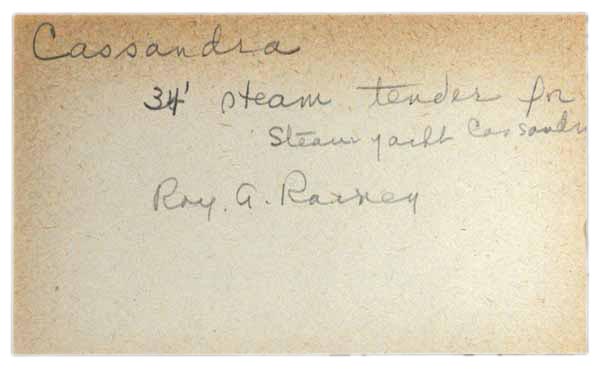 Cassandra
34' steam tender for
Steam yacht Cassandr
Roy. A. Rainey